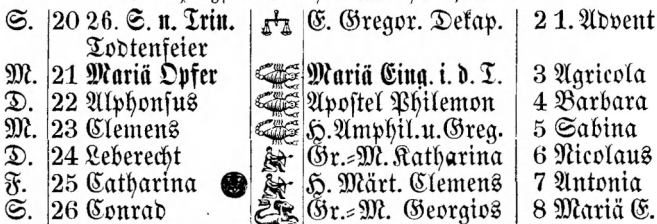 S. 20 26. S. n. Trin. E. Gregor. Dekap. 2 1. Advent
Todtenfeier
M. 21 Mariä Opfer Mariä Eing. i. d. T. 3 Agricola
D. 22 Alphonsus Apostel Philemon 4 Barbara
M. 23 Clemens H. Amphil. u. Greg. 5 Sabina
D. 24 Leberecht Gr.=M. Katharina 6 Nicolaus
F. 25 Catharina H. Märt. Clemens 7 Antonia
S. 26 Conrad Gr.=M. Georgios 8 Mariä E.